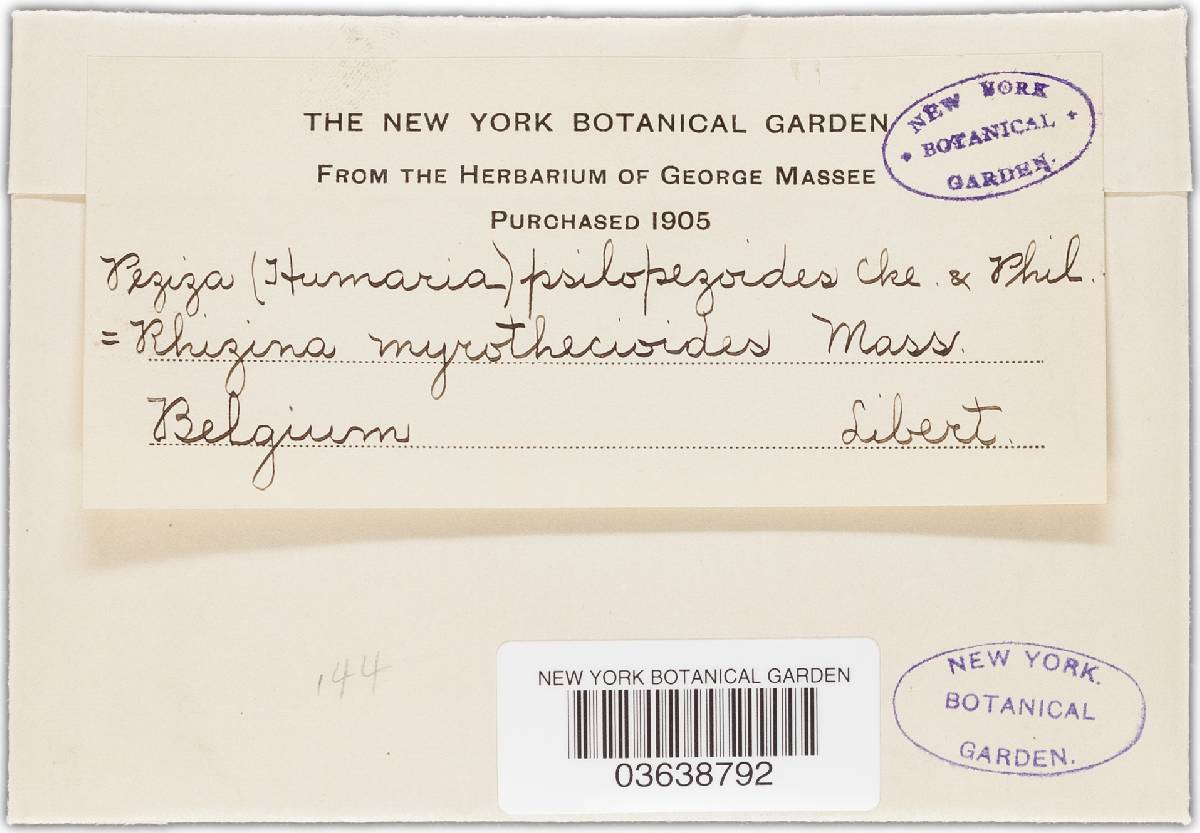 THE NEW YORK BOTANICAL GARDEN
FROM THE HERBARIUM OF GEORGE MASSEE
PURCHASED 1905
NEW YORK
BOTANICAL
GARDEN.
Peziza (Humaria) psilopezoides Cke. & Phil.
= Rhizina myrothecioides Mass.
Belgium Libert.
144
NEW YORK BOTANICAL GARDEN
03638792
NEW YORK.
BOTANICAL
GARDEN.